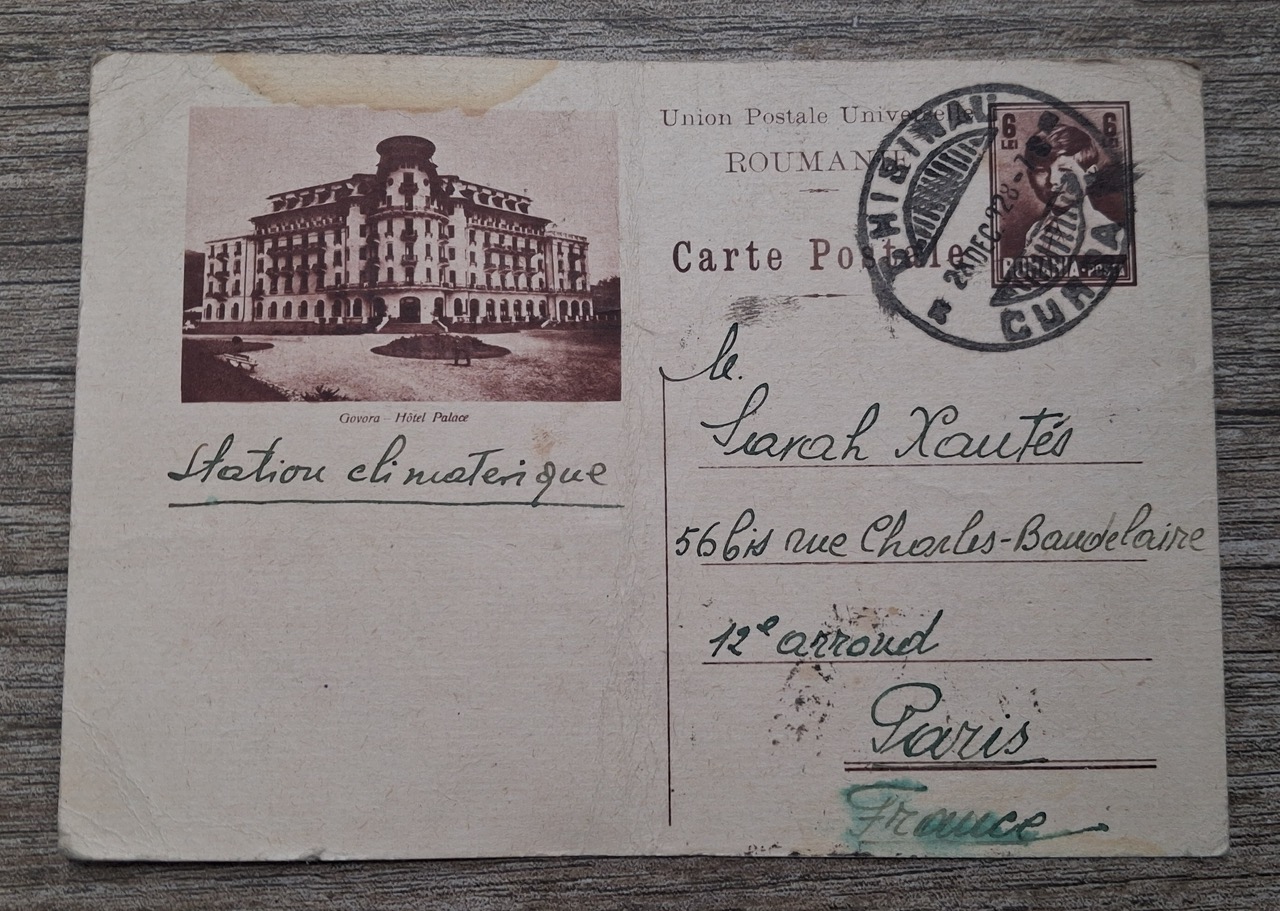 Union Postale Universelle
ROUMANIE
Carte Postale
CHISINAU
28 DEC 928
CURSA
6 LEI 6 LEI
ROMANIA-Posta
Govora - Hôtel Palace
Station climaterique
Sarah Xantés
56 bis rue Charles-Baudelaire
12e arrond
Paris
France